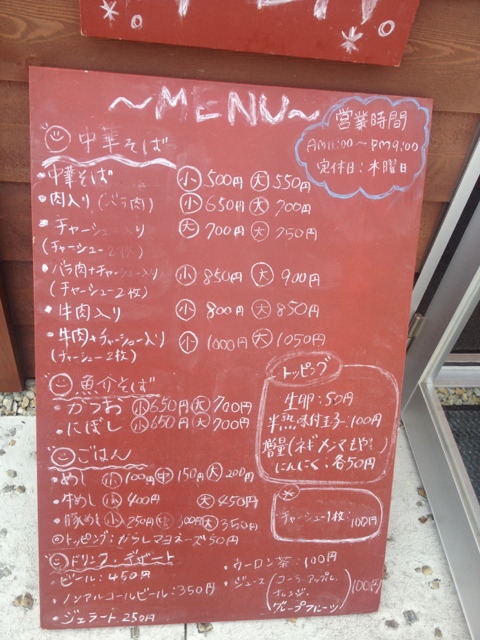 ~MENU~
営業時間
AM11:00~PM9:00
定休日:木曜日
中華そば
・中華そば 小 500円 大 550円
・肉入り(バラ肉) 小 650円 大 700円
・チャーシュー入り 大 700円 大 750円
(チャーシュー2枚)
・バラ肉+チャーシュー入り 小 850円 大 900円
(チャーシュー2枚)
・牛肉入り 小 800円 大 850円
・牛肉+チャーシュー入り 小 1000円 大 1050円
(チャーシュー2枚)
トッピング
生卵:50円
半熟味付玉子:100円
増量(ネギメンマもやし)
にんにく:各50円
チャーシュー1枚:100円
魚介そば
・かつお 小 650円 大 700円
・にぼし 小 650円 大 700円
ごはん
・めし 小 100円 中 150円 大 200円
・牛めし 小 400円 大 450円
・豚めし 小 250円 中 300円 大 350円
トッピング:からしマヨネーズ50円
ドリンク デザート
・ビール:450円
・ノンアルコールビール:350円
・ジェラート250円
・ウーロン茶:100円
・ジュース(コーラ・アップル、オレンジ、グレープフルーツ)100円